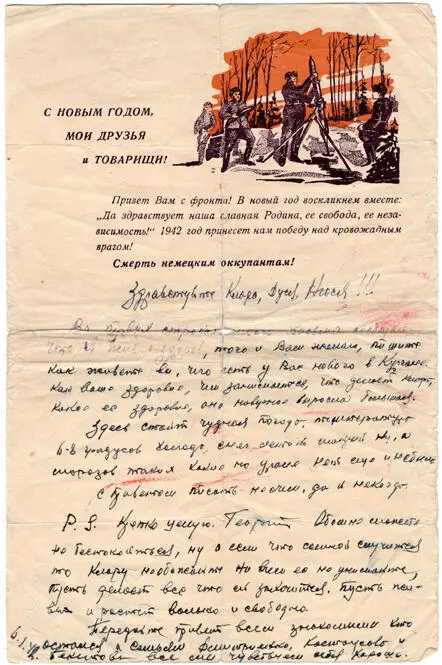 С НОВЫМ ГОДОМ,
МОИ ДРУЗЬЯ
и ТОВАРИЩИ!
Привет Вам с фронта! В новый год воскликнем вместе:
„Да здравствует наша славная Родина, ее свобода, ее неза-
висимость!" 1942 год принесет нам победу над кровожадным
врагом!
Смерть немецким оккупантам!
Здравствуйте Клара, Дуся, Нюся!!!
что я жив и здоров, того и Вам желаю, пишите
как живете вы, что есть у Вас нового в
как ваше здоровье, чем занимаетесь, что делает
какое ее здоровье, она наверное выросла большая.
Здесь стоит чудная погода, температура
6-8 градусов холода, снег
морозов таких какие на Урале нет еще и небыло
с приветом писать кончаю, да и некогда.
P. S. Крепко целую. Георгий
не беспокойтесь, ну а если что со мной случится
то Клару не обижайте ни в чем ее не унижайте,
пусть делает все что ей захочется, пусть
и растет вольно и свободно.
Передайте привет всем знакомым кто
остался